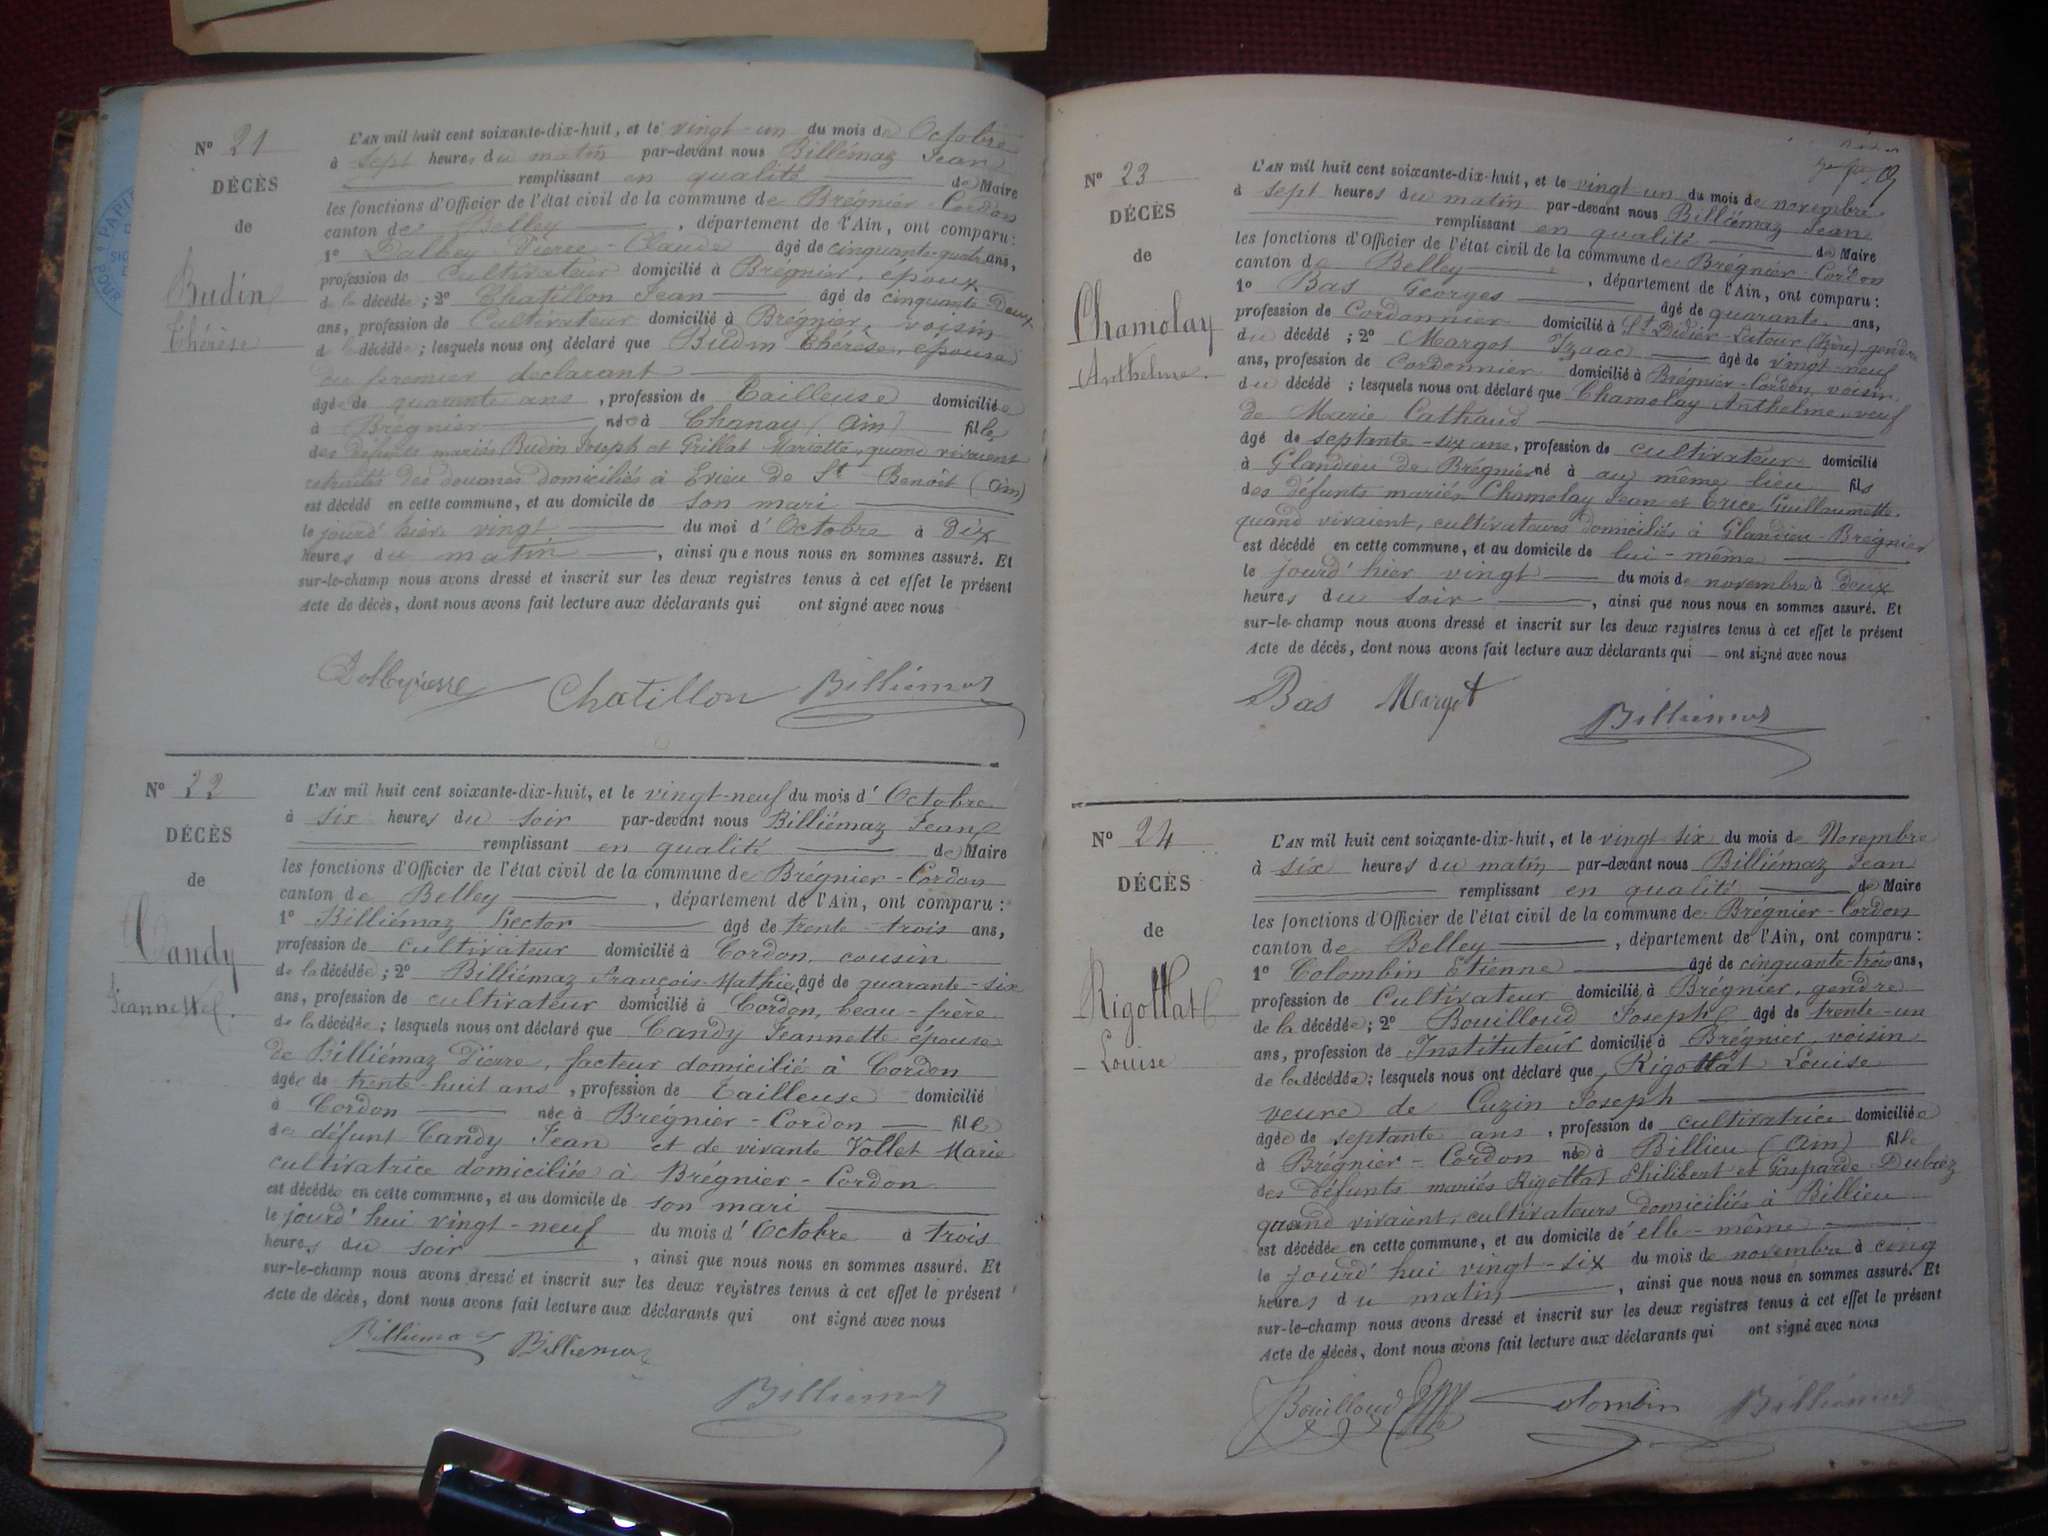 N° 21
DÉCÈS
de
Budin
Thérèse
L'AN mil huit cent soixante-dix-huit, et le vingt-un du mois de Octobre
à sept heures du matin par-devant nous Billiémaz Jean
remplissant en qualité de Maire
les fonctions d'Officier de l'état civil de la commune de Brégnier-Cordon
canton de Belley, département de l'Ain, ont comparu :
1° Dalbey Pierre-Claude âgé de cinquante-quatre ans,
profession de Cultivateur domicilié à Brégnier, époux
de la décédée ; 2° Chatillon Jean âgé de cinquante deux
ans, profession de Cultivateur domicilié à Brégnier, voisin
de la décédée ; lesquels nous ont déclaré que Budin Thérèse, épouse
du premier déclarant
âgée de quarante ans, profession de Tailleuse domiciliée
à Brégnier née à Chanay (Ain) fille
des défunts mariés Budin Joseph et Grillat Mariette, quand vivaient
retraités des douanes domiciliés à Evieu de St Benoît (Ain)
est décédé en cette commune, et au domicile de son mari
le jourd'hier vingt du moi d'Octobre à Dix
heures du matin, ainsi que nous nous en sommes assuré. Et
sur-le-champ nous avons dressé et inscrit sur les deux registres tenus à cet effet le présent
Acte de décès, dont nous avons fait lecture aux déclarants qui ont signé avec nous
Chatillon Billiémaz
N° 22
DÉCÈS
de
Candy
Jeannette.
L'AN mil huit cent soixante-dix-huit, et le vingt-neuf du mois d'Octobre
à six heures du soir par-devant nous Billiémaz Jean
remplissant en qualité de Maire
les fonctions d'Officier de l'état civil de la commune de Brégnier-Cordon
canton de Belley, département de l'Ain, ont comparu :
1° Billiémaz Hector âgé de trente-trois ans,
profession de cultivateur domicilié à Cordon, cousin
de la décédée ; 2° Billiémaz François-Mathieu âgé de quarante-six
ans, profession de cultivateur domicilié à Cordon, beau-frère
de la décédée ; lesquels nous ont déclaré que Candy Jeannette épouse
de Billiémaz Pierre, facteur domicilié à Cordon
âgée de trente-huit ans, profession de Tailleuse domicilié
à Cordon née à Brégnier-Cordon fille
de défunt Candy Jean et de vivante Vollet Marie
cultivatrice domiciliée à Brégnier-Cordon
est décédée en cette commune, et au domicile de son mari
le jourd'hui vingt-neuf du mois d'Octobre à trois
heures du soir, ainsi que nous nous en sommes assuré. Et
sur-le-champ nous avons dressé et inscrit sur les deux registres tenus à cet effet le présent
Acte de décès, dont nous avons fait lecture aux déclarants qui ont signé avec nous
Billiemaz Billiemaz
Billiémaz
N° 23
DÉCÈS
de
Chamolay
Anthelme.
L'AN mil huit cent soixante-dix-huit, et le vingt-un du mois de novembre
à sept heures du matin par-devant nous Billiémaz Jean
remplissant en qualité de Maire
les fonctions d'Officier de l'état civil de la commune de Brégnier-Cordon
canton de Belley, département de l'Ain, ont comparu :
1° Bas Georges âgé de quarante ans,
profession de Cordonnier domicilié à St Didier-Latour (Isère) gendre
du décédé ; 2° Margot Izaac âgé de vingt-neuf
ans, profession de Cordonnier domicilié à Brégnier-Cordon, voisin
du décédé ; lesquels nous ont déclaré que Chamolay Anthelme, veuf
de Marie Cathaud
âgé de septante-six ans, profession de cultivateur domicilié
à Glandieu de Brégnier né à au même lieu fils
des défunts mariés Chamolay Jean et Guillaumette.
quand vivaient, cultivateurs domiciliés à Glandieu-Brégnier
est décédé en cette commune, et au domicile de lui-même
le jourd'hier vingt du mois de novembre à Deux
heures du soir, ainsi que nous nous en sommes assuré. Et
sur-le-champ nous avons dressé et inscrit sur les deux registres tenus à cet effet le présent
Acte de décès, dont nous avons fait lecture aux déclarants qui ont signé avec nous
Bas Margot
Billiémaz
N° 24
DÉCÈS
de
Rigottat
Louise
L'AN mil huit cent soixante-dix-huit, et le vingt six du mois de Novembre
à six heures du matin par-devant nous Billiémaz Jean
remplissant en qualité de Maire
les fonctions d'Officier de l'état civil de la commune de Brégnier-Cordon
canton de Belley, département de l'Ain, ont comparu :
1° Colombin Etienne âgé de cinquante-trois ans,
profession de Cultivateur domicilié à Brégnier, gendre
de la décédée ; 2° Bouilloud Joseph âgé de trente-un
ans, profession de Instituteur domicilié à Brégnier, voisin
de la décédée ; lesquels nous ont déclaré que Rigottat Louise
veuve de Cuzin Joseph
âgée de septante ans, profession de cultivatrice domiciliée
à Brégnier-Cordon née à Billieu (Ain) fille
des défunts mariés Rigottat Philibert et Gasparde Dubiez
quand vivaient, cultivateurs domiciliés à Billieu
est décédée en cette commune, et au domicile d'elle-même
le jourd'hui vingt-six du mois de novembre à cinq
heures du matin, ainsi que nous nous en sommes assuré. Et
sur-le-champ nous avons dressé et inscrit sur les deux registres tenus à cet effet le présent
Acte de décès, dont nous avons fait lecture aux déclarants qui ont signé avec nous
Bouilloud Colombin Billiémaz